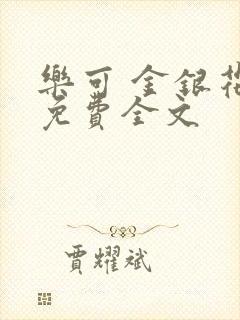 樂可 金銀花
免費全文
賈耀斌